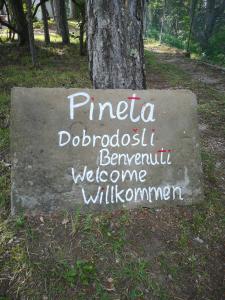 Pineta
Dobrodošli
Benvenuti
Welcome
Willkommen